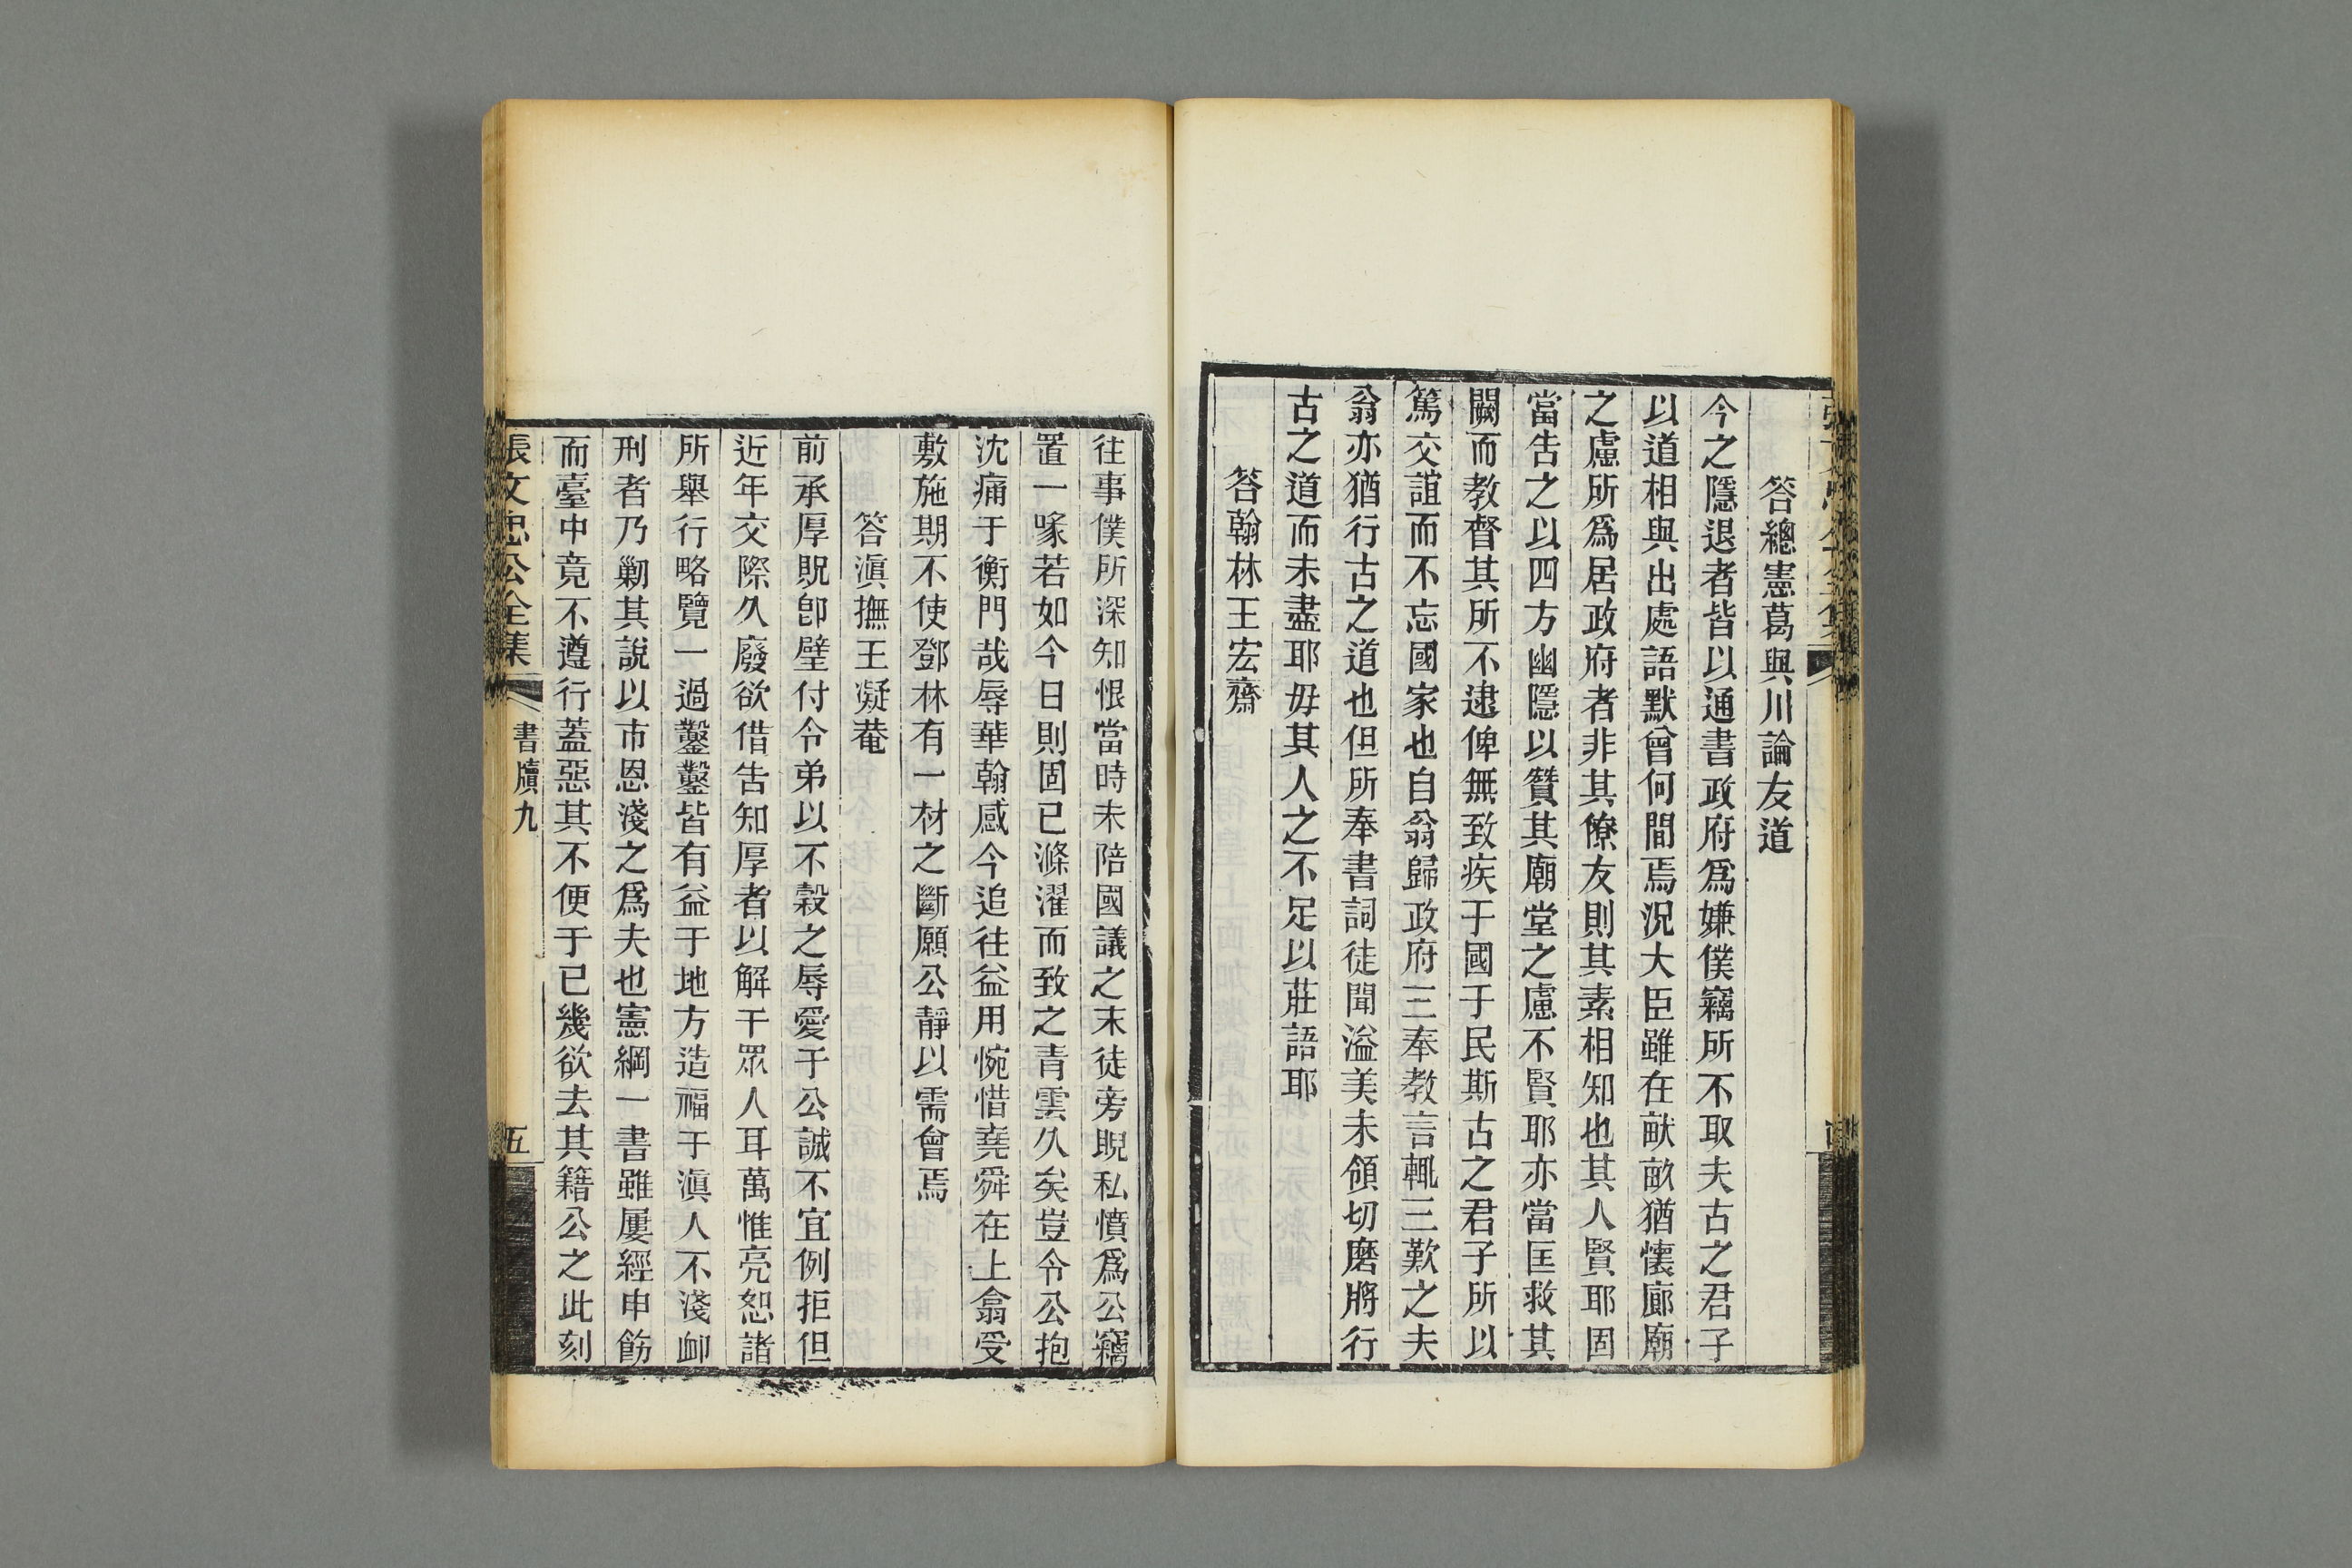 答總憲葛與川論友道
今之隱退者皆以通書政府爲嫌僕竊所不取夫古之君子
以道相與出處語默曾何間焉況大臣雖在畎畝猶懷廊廟
之慮所爲居政府者非其僚友則其素相知也其人賢耶固
當告之以四方幽隱以贊其廟堂之慮不賢耶亦當匡救其
闕而教督其所不逮俾無致疾于國于民斯古之君子所以
篤交誼而不忘國家也自翁歸政府三奉教言輒三歎之夫
翁亦猶行古之道也但所奉書詞徒聞溢美未領切磨將行
古之道而未盡耶毋其人之不足以莊語耶
答翰林王宏齋
往事僕所深知恨當時未陪國議之末徒旁睨私憤爲公竊
置一喙若如今日則固已滌濯而致之青雲久矣豈令公抱
沈痛于衡門哉辱華翰感今追往益用惋惜堯舜在上翕受
敷施期不使鄧林有一材之斷願公靜以需會焉
答滇撫王凝菴
前承厚貺卽璧付令弟以不穀之辱愛于公誠不宜例拒但
近年交際久廢欲借告知厚者以解于眾人耳萬惟亮恕諸
所舉行略覽一過鑿鑿皆有益于地方造福于滇人不淺卹
刑者乃勦其說以市恩淺之爲夫也憲綱一書雖屢經申飭
而臺中竟不遵行蓋惡其不便于已幾欲去其籍公之此刻
張文忠公全集
書牘九
五